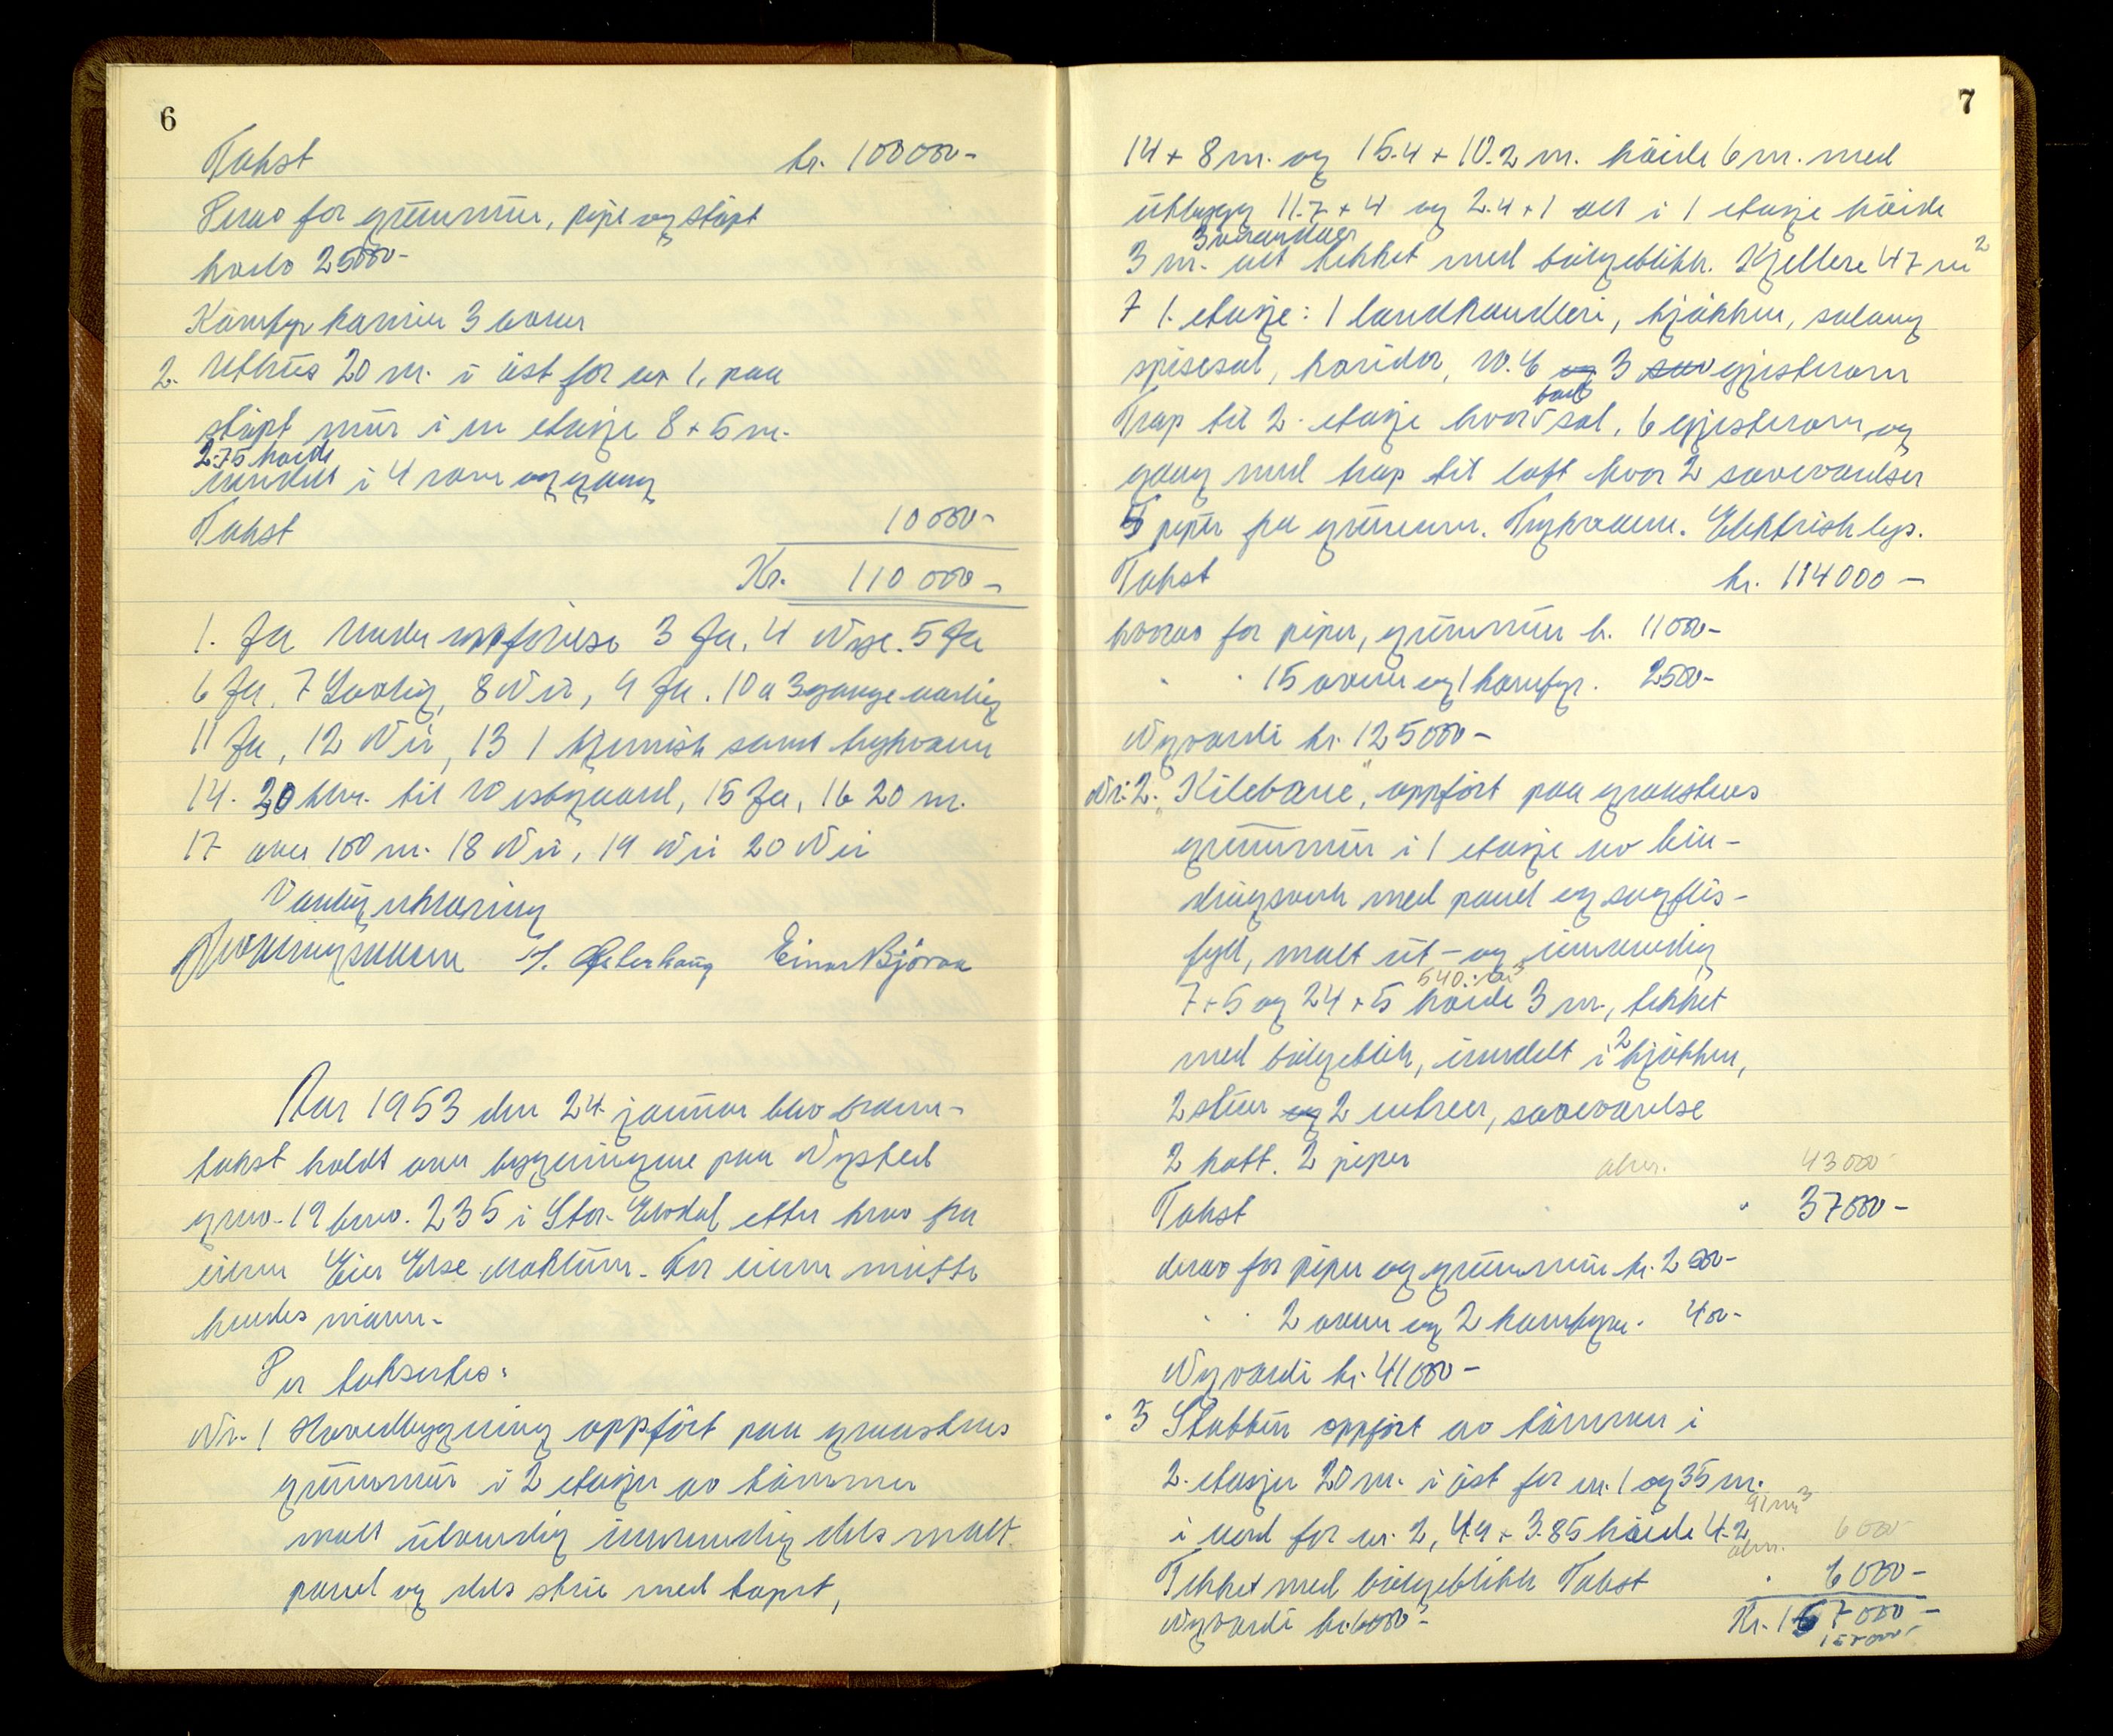 6
Takst kr. 100000-
Derav for grunnmur, pipe og støpt
kvelv 25000-
Komfyr kamin 3 ovner
2. Uthus 20 m. i øst for nr 1. paa
støpt mur i en etasje 8 + 5 m.
2.75 høide
inndelt i 4 rom og gang
Takst 10000-
Kr. 110000-
1. Ja Under oppførelse 3 Ja, 4 Nye. 5 Ja
6 Ja, 7 Lovlig, 8 Nei, 9 Ja. 10 a 3 gange aarlig
11 Ja, 12 Nei, 13 1 kjemisk samt trykvann
14. 20 klm. til Vestgaard, 15 Ja, 16 20 m.
17 over 100 m. 18 Nei, 19 Nei 20 Nei
Vanlig erklæring
Einar Bjøraa
Aar 1953 den 24. januar blev brann-
takst holdt over bygningene paa Nysted
gnr. 19 bnr. 235 i Stor-Elvdal etter krav fra
eieren Eier Else Maktum. For eieren møtte
hendes mann.
Der takseres:
Nr. 1 Hovedbygning oppført paa graastens
grunnmur i 2 etasjer av tømmer
malt utvendig innvendig dels malt
panel og dels strie med tapet,
7
14 + 8 m. og 15.4 + 10.2 m. høide 6 m. med
utbygg 11.7 + 4 og 2.4 + 1 alt i 1 etasje høide
3 verandaer
3 m. alt tekket med bølgeblikk. Kjellere 47 m2
I 1. etasje: 1 landhandleri, kjøkken, salong
spisesal, koridor, W.C og 3 gjesterom
bad
Trap til 2. etasje hvor sal, 6 gjesterom og
gang med trap til loft hvor 2 soveværelser
5 piper fra grunnen. Trykvann. Elektrisk lys.
Takst kr. 114000-
hvorav for piper, grunnmur kr. 11000-
" " 15 ovner og 1 komfyr. 2500-
Nyverdi kr. 125000-
Nr. 2. "Kilebarre", oppført paa graastens
grunnmur i 1 etasje av bin-
dingsverk med panel og sagflis-
fyll, malt ut- og innvendig
540. m3
7 + 5 og 24 + 5 høide 3 m., tekket
med bølgeblik, inndelt i 2 kjøkken,
2 stuer og 2 entreer, soveværelse
2 kott. 2 piper 43000-
Takst " 37000-
derav for piper og grunnmur kr. 2000-
" " 2 ovner og 2 komfyrer. 400-
Nyverdi kr. 41000-
" 3 Stabbur oppført av tømmer i
2. etasjer 20 m. i øst for nr. 1 og 35 m.
91 m3
i nord for nr. 2, 4.9 + 3.85 høide 4.2 6000
Tekket med bølgeblikk Takst " 6000-
Nyverdi kr. 6000- Kr. 157000-